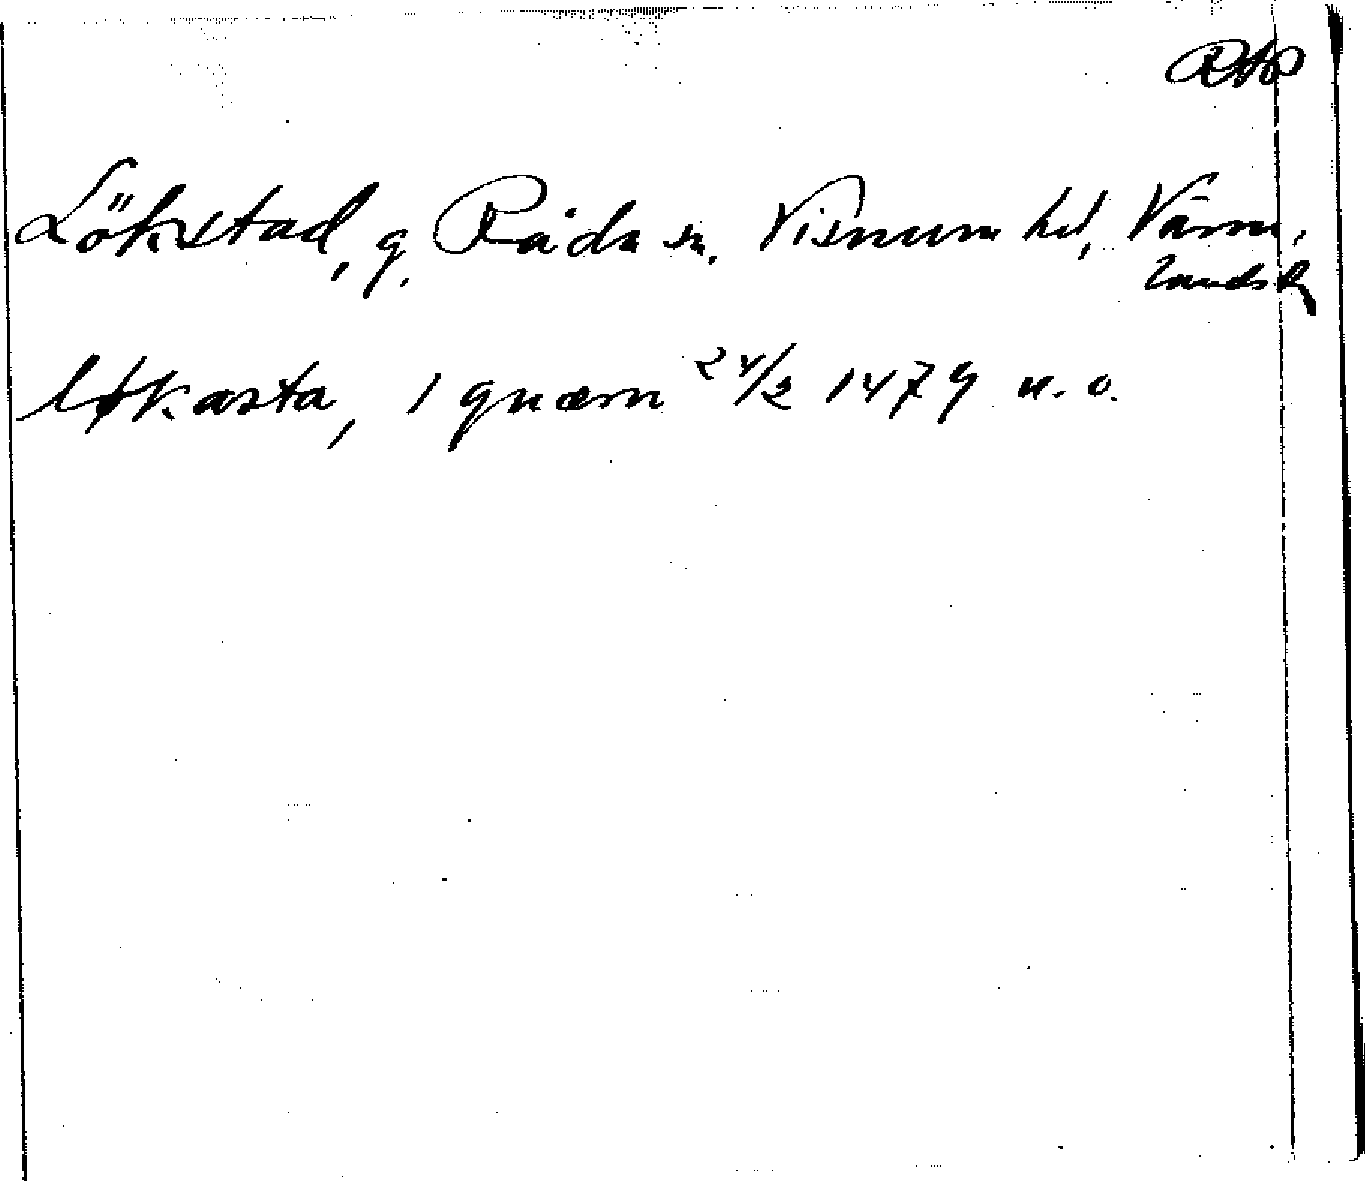 RAP
Lökstad, g. Råda sn. Visnum hd, Värm.
landsk
løkasta, 1 quærn 24/2 1479 u. o.